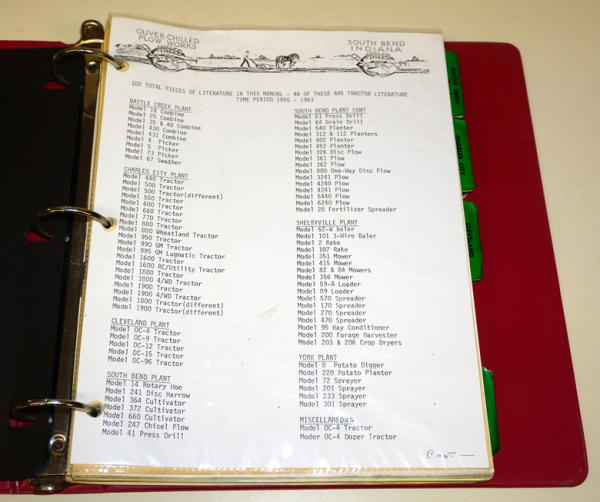 OLIVER CHILLED
PLOW WORKS
SOUTH BEND
INDIANA
102 TOTAL PIECES OF LITERATURE IN THIS MANUAL - 46 OF THESE ARE TRACTOR LITERATURE
TIME PERIOD 1955 - 1963
BATTLE CREEK PLANT
Model 18 Combine
Model 25 Combine
Model 35 & 40 Combine
Model 430 Combine
Model 431 Combine
Model 4 Picker
Model 5 Picker
Model 73 Picker
Model 67 Swather
CHARLES CITY PLANT
Model 440 Tractor
Model 500 Tractor
Model 500 Tractor(different)
Model 550 Tractor
Model 600 Tractor
Model 660 Tractor
Model 770 Tractor
Model 880 Tractor
Model 880 Wheatland Tractor
Model 950 Tractor
Model 990 GM Tractor
Model 995 GM Lugmatic Tractor
Model 1600 Tractor
Model 1600 RC/Utility Tractor
Model 1800 Tractor
Model 1800 4/WD Tractor
Model 1900 Tractor
Model 1900 4/WD Tractor
Model 1800 Tractor(different)
Model 1900 Tractor(different)
CLEVELAND PLANT
Model OC-4 Tractor
Model OC-9 Tractor
Model OC-12 Tractor
Model OC-15 Tractor
Model OC-96 Tractor
SOUTH BEND PLANT
Model 14 Rotary Hoe
Model 241 Disc Harrow
Model 364 Cultivator
Model 372 Cultivator
Model 660 Cultivator
Model 247 Chisel Plow
Model 41 Press Drill
SOUTH BEND PLANT CONT
Model 61 Press Drill
Model 64 Grain Drill
Model 540 Planter
Model 312 & 112 Planters
Model 402 Planter
Model 452 Planter
Model 326 Disc Plow
Model 361 Plow
Model 362 Plow
Model 800 One-Way Disc Plow
Model 3241 Plow
Model 4240 Plow
Model 4241 Plow
Model 5440 Plow
Model 6240 Plow
Model 28 Fertilizer Spreader
SHELBYVILLE PLANT
Model 62-W baler
Model 101 3-Wire Baler
Model 2 Rake
Model 107 Rake
Model 351 Mower
Model 415 Mower
Model 82 & 84 Mowers
Model 356 Mower
Model 59-A Loader
Model 89 Loader
Model 570 Spreader
Model 170 Spreader
Model 270 Spreader
Model 470 Spreader
Model 95 Hay Conditioner
Model 200 Forage Harvester
Model 203 & 206 Crop Dryers
YORK PLANT
Model 8 Potato Digger
Model 220 Potato Planter
Model 72 Sprayer
Model 201 Sprayer
Model 233 Sprayer
Model 301 Sprayer
MISCELLANEOUS
Model OC-4 Tractor
Moder OC-4 Dozer Tractor
CONT —
BATTLE CREEK
CHARLES CITY
CLEVELAND